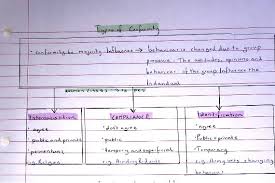 Types of Conformity
• Conformity to majority influence → behaviour is changed due to group
pressure. The attitudes, opinions and
behaviour of the group influence the
individual
Internalisation
• agree
• public and private
• permanent
e.g. Religion
Compliance
• don't agree
• public
• temporary and superficial
Identification
• agree
• Public + private
• Temporary
behaviour